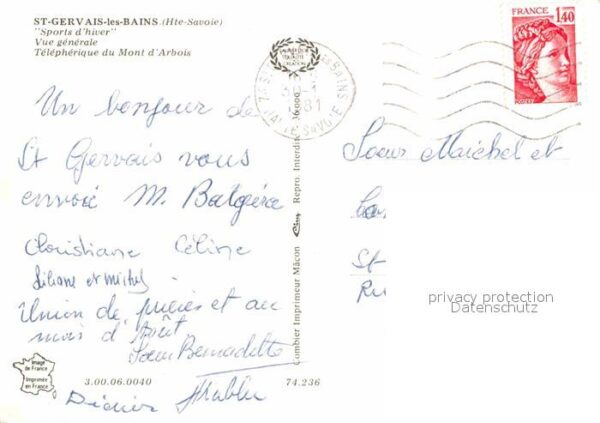 ST-GERVAIS-les-BAINS (Hte-Savoie)
"Sports d'hiver"
Vue générale
Téléphérique du Mont d'Arbois
FRANCE
1,40
POSTES
81
HAUTE SAVOIE
Un bonjour de
St Gervais vous
envoie M.
Christiane Céline
Liliane et Michel
Union de prières et au
mois d'Août
Soeur Bernadette
Didier
Combier Imprimeur Mâcon Repro. Interdite
Soeur Maichel et
St-
privacy protection
Datenschutz
Image
de France
Imprimée
en France
3.00.06.0040
74.236